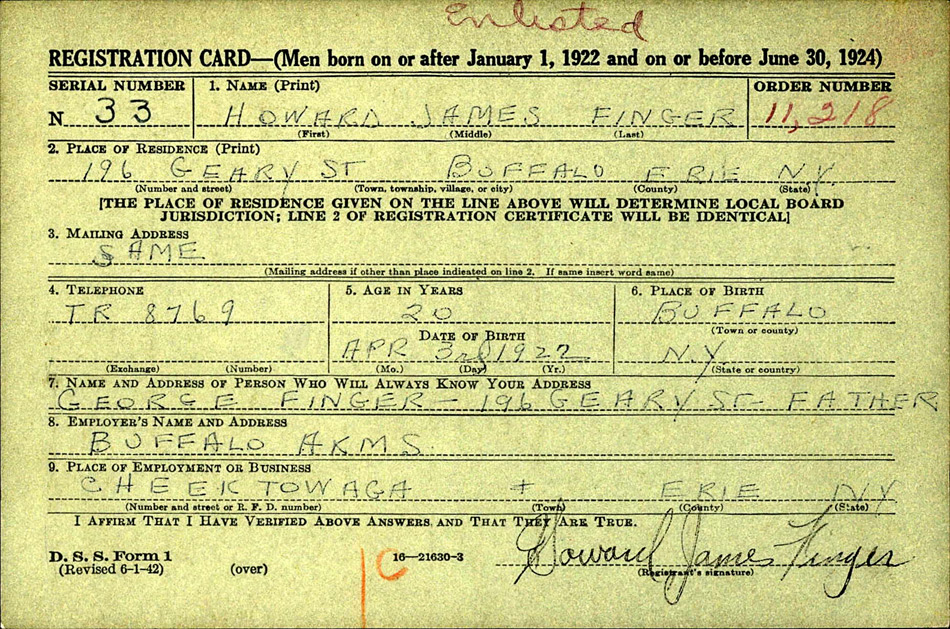 Enlisted
REGISTRATION CARD—(Men born on or after January 1, 1922 and on or before June 30, 1924)
SERIAL NUMBER 1. NAME (Print) ORDER NUMBER
N 33 HOWARD JAMES FINGER 11,218
(First) (Middle) (Last)
2. PLACE OF RESIDENCE (Print)
196 GEARY ST BUFFALO ERIE N.Y.
(Number and street) (Town, township, village, or city) (County) (State)
[THE PLACE OF RESIDENCE GIVEN ON THE LINE ABOVE WILL DETERMINE LOCAL BOARD
JURISDICTION; LINE 2 OF REGISTRATION CERTIFICATE WILL BE IDENTICAL]
3. MAILING ADDRESS
SAME
(Mailing address if other than place indicated on line 2. If same insert word same)
4. TELEPHONE 5. AGE IN YEARS 6. PLACE OF BIRTH
TR 8769 20 BUFFALO
DATE OF BIRTH (Town or county)
APR 3rd 1922 N.Y.
(Exchange) (Number) (Mo.) (Day) (Yr.) (State or country)
7. NAME AND ADDRESS OF PERSON WHO WILL ALWAYS KNOW YOUR ADDRESS
GEORGE FINGER — 196 GEARY ST- FATHER
8. EMPLOYER'S NAME AND ADDRESS
BUFFALO ARMS
9. PLACE OF EMPLOYMENT OR BUSINESS
CHEEKTOWAGA + ERIE NY
(Number and street or R. F. D. number) (Town) (County) (State)
I AFFIRM THAT I HAVE VERIFIED ABOVE ANSWERS AND THAT THEY ARE TRUE.
D. S. S. Form 1 16—21630-3 Howard James Finger
(Revised 6-1-42) (over) C (Registrant's signature)